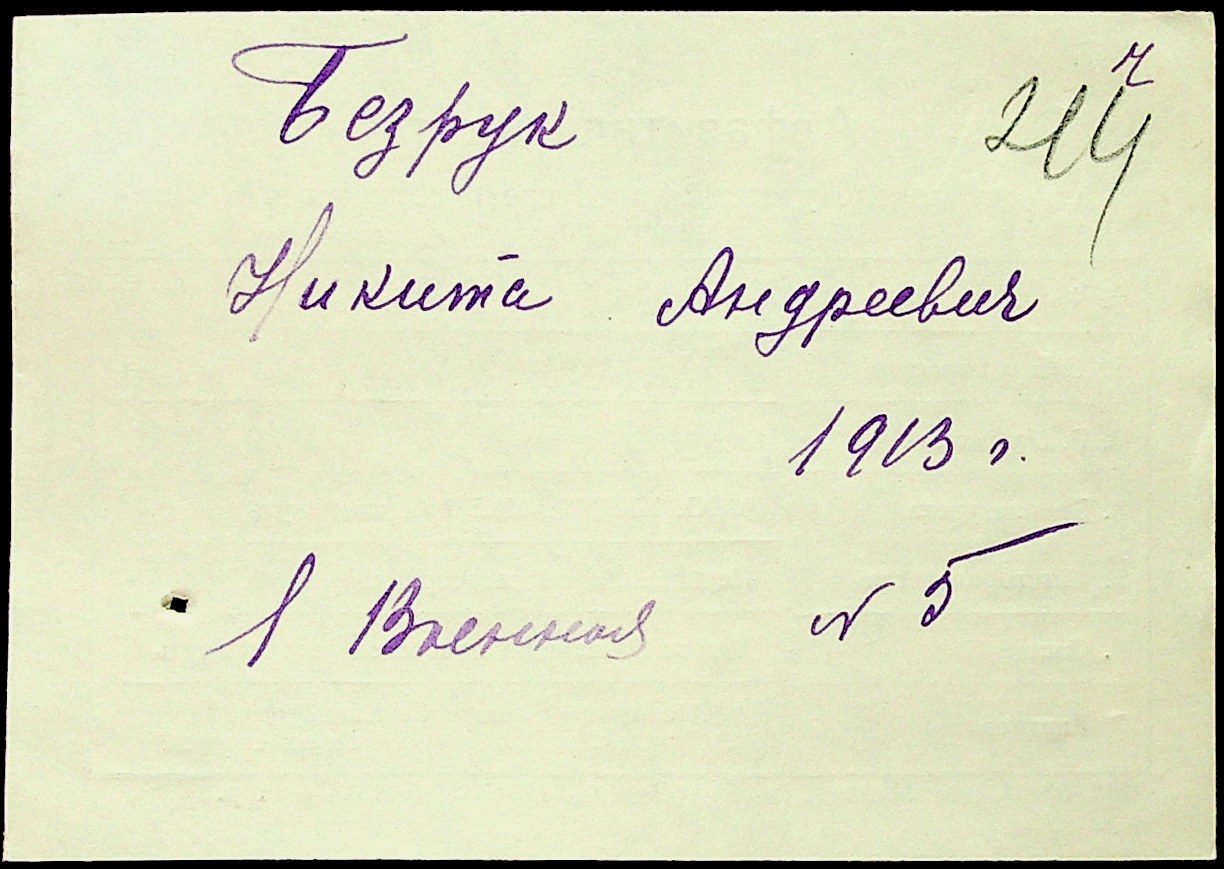 Безрук
Никита Андреевич
1913 г.
1 Военная № 5